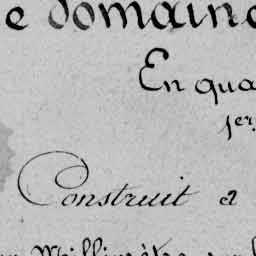 e domaine
En qua
1er
Construit
Millimètre